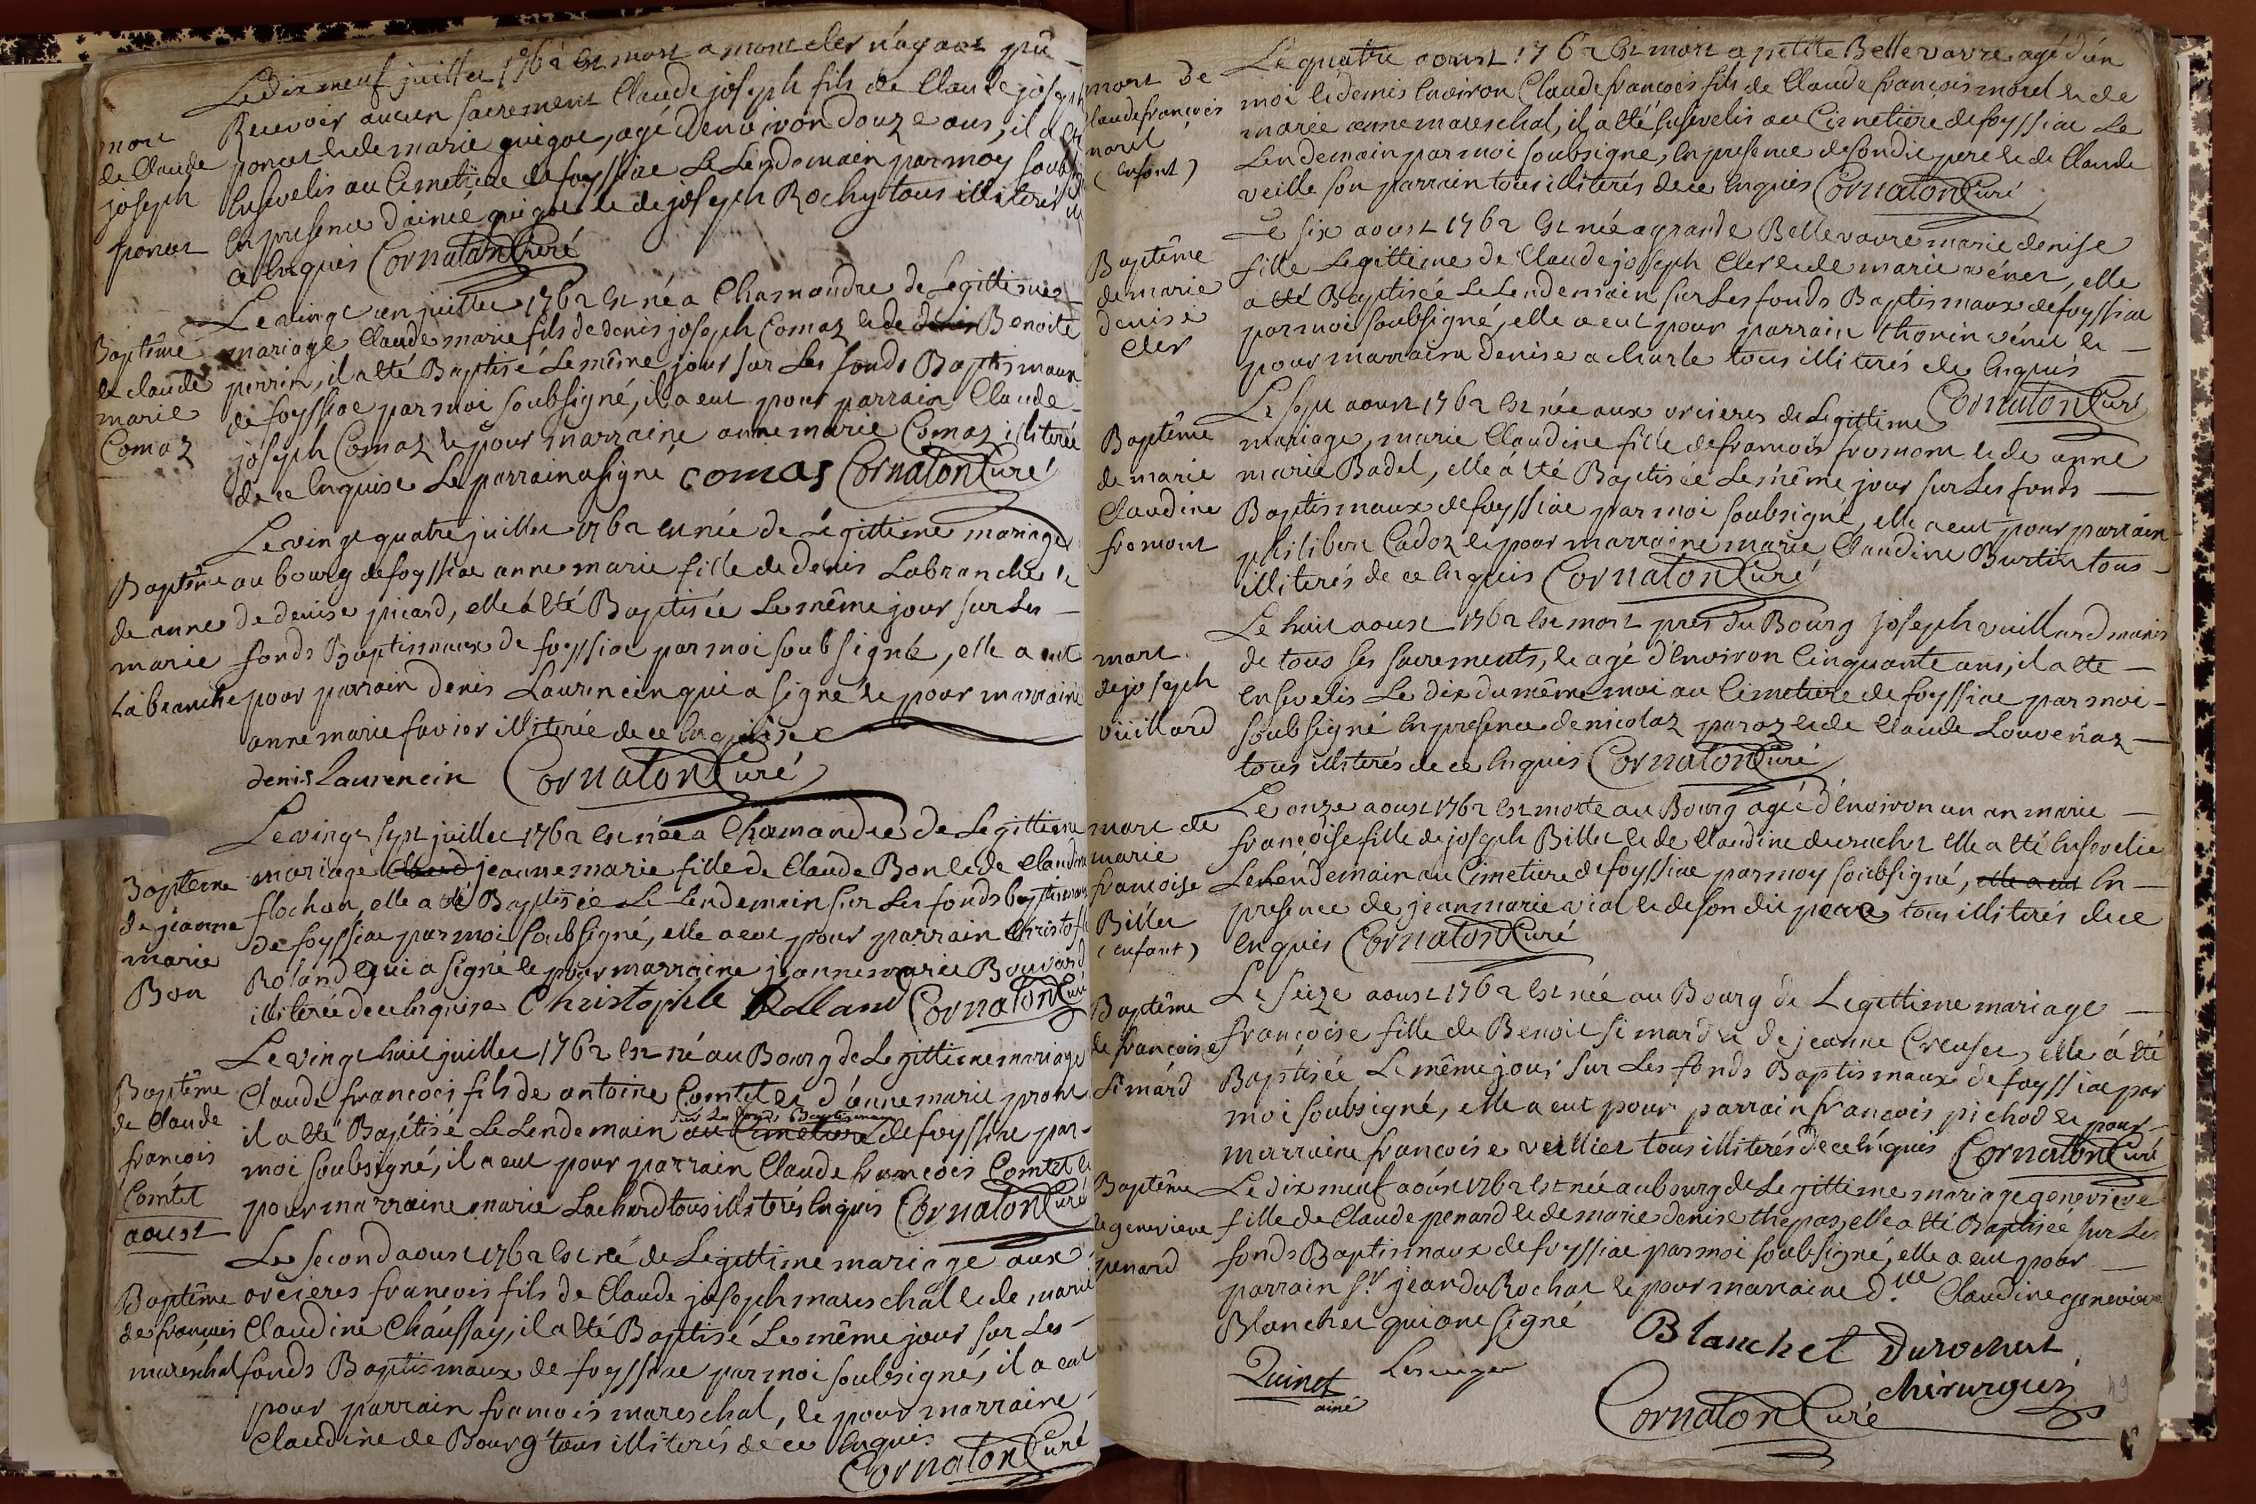 Le dix neuf juillet 1762 est mort a montcler n'ayant pû
mort
de Claude
joseph
poncet
Recevoir aucun sacrement Claude joseph fils de Claude joseph
poncet et de marie guigue, agé d'environ douze ans, il a été
Ensevelis au Cimetiere de foyssiac Le Lendemain par moy soubsigné
En presence d'aimé guigue et de joseph Rochy tous illiterés
enquis Cornaton Curé
Baptême
de claude
marie
Comaz
Le vingt un juillet 1762 est né a Chamandre de Légittime
mariage Claude marie fils de denis joseph Comaz et de Benoite
perrin, il a été Baptisé Le même jour sur Les fonds Baptismaux
de foyssiac par moi soubsigné, il a eut pour parrain Claude
joseph Comaz et pour marraine anne marie Comaz illiterée
de ce Enquise Le parrain a signé comas Cornaton Curé
Baptême
de anne
marie
Labranche
Le vingt quatre juillet 1762 est née de Légittime mariage
au bourg de foyssiac anne marie fille de denis Labranche et
de denise picard, elle a été Baptisée Le même jour sur Les
fonds Baptismaux de foyssiac par moi soubsigné, elle a eut
pour parrain denis Laurencin qui a signé et pour marraine
anne marie favier illiterée de ce Enquise
denis Laurencin Cornaton Curé
Baptême
de jeanne
marie
Bon
Le vingt sept juillet 1762 est née a Chamandre de Legittime
mariage jeanne marie fille de Claude Bon et de Claudine
flochon, elle a été Baptisée Le Lendemain sur Les fonds baptismaux
de foyssiac par moi soubsigné, elle a eut pour parrain Christofle
Roland qui a signé et pour marraine jeanne marie Bouvard
illiterée de ce Enquise Christophle Rolland Cornaton Curé
Baptême
de Claude
françois
Comtet
Le vingt huit juillet 1762 est né au Bourg de Legittime mariage
Claude françois fils de antoine Comtet et d'anne marie pront
il a été Baptisé Le Lendemain sur Les fonds Baptismaux au Cimetiere de foyssiac par
moi soubsigné, il a eut pour parrain Claude françois Comtet et
pour marraine marie Lachard tous illiterés Enquis Cornaton Curé
aoust
Baptême
de françois
mareschal
Le second aoust 1762 est né de Legittime mariage aux
orcieres françois fils de Claude joseph mareschal et de marie
Claudine Chaussay, il a été Baptisé Le même jour sur Les
fonds Baptismaux de foyssiac par moi soubsigné, il a eut
pour parrain françois mareschal, et pour marraine
Claudine de Bourg tous illiterés de ce Enquis
Cornaton Curé
mort de
Claude françois
morel
(enfant)
Le quatre aoust 1762 est mort a petite Bellevavre agé d'un
moi et demis Environ Claude françois fils de Claude françois morel et de
marie anne mareschal, il a été Ensevelis au Cimetiere de foyssiac Le
Lendemain par moi soubsigné, En presence de son dit pere et de Claude
veille son parrain tous illiterés de ce Enquis Cornaton Curé
Baptême
de marie
denise
Cler
Le six aoust 1762 est née a grande Bellevavre marie denise
fille Legittime de Claude joseph Cler et de marie vénet, elle
a été Baptisée Le Lendemain sur Les fonds Baptismaux de foyssiac
par moi soubsigné, elle a eut pour parrain thonin vénet et
pour marraine denise acharle tous illiterés de Enquis
Cornaton Curé
Baptême
de marie
Claudine
fromont
Le sept aoust 1762 est née aux orcieres de Legittime
mariage, marie Claudine fille de françois fromont et de anne
marie Badel, elle a été Baptisée Le même jour sur Les fonds
Baptismaux de foyssiac par moi soubsigné, elle a eut pour parrain
philibert Cadoz et pour marraine marie Claudine Burtin tous
illiterés de ce Enquis Cornaton Curé
mort
de joseph
vuillard
Le huit aoust 1762 est mort près du Bourg joseph vuillard munis
de tous ses sacrements, et agé d'Environ Cinquante ans, il a été
Ensevelis Le dix du même moi au Cimetiere de foyssiac par moi
soubsigné En presence de nicolaz paroz et de Claude Louvenaz
tous illiterés de ce Enquis Cornaton Curé
mort de
marie
françoise
Billet
(enfant)
Le onze aoust 1762 est morte au Bourg agée d'Environ un an marie
françoise fille de joseph Billet et de Claudine durochat elle a été Ensevelie
Le Lendemain au Cimetiere de foyssiac par moy soubsigné, elle a eut En
presence de jean marie vial et de son dit pere tous illiterés de ce
Enquis Cornaton Curé
Baptême
de françoise
Simard
Le seize aoust 1762 est née au Bourg de Legittime mariage
françoise fille de Benoit simard et de jeanne Creuset, elle a été
Baptisée Le même jour sur Les fonds Baptismaux de foyssiac par
moi soubsigné, elle a eut pour parrain françois pichod et pour
marraine françoise veillier tous illiterés de ce Enquis Cornaton Curé
Baptême
de genevieve
penard
Le dix neuf aoust 1762 est née au bourg de Legittime mariage genevieve
fille de Claude penard et de marie denise thepaz, elle a été Baptisée sur Les
fonds Baptismaux de foyssiac par moi soubsigné, elle a eut pour
parrain Sr jean du Rochat et pour marraine d.lle Claudine genevieve
Blanchet qui ont signé
Blanchet Durochat
Quinet
ainé
chirurgien
Cornaton Curé